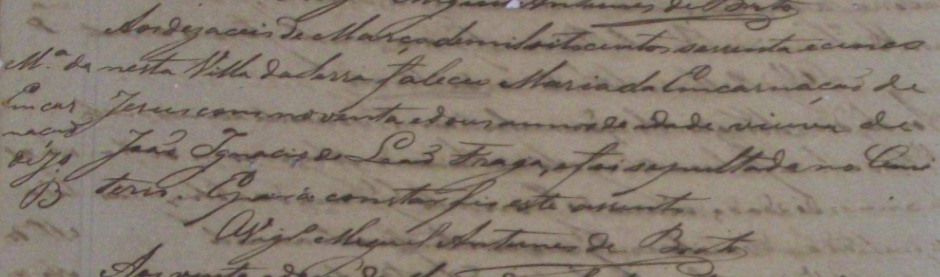 Antunes de Brito
Aos dezaceis de Março de mil oitocentos secenta e cinco
M.ª da nesta Villa da Serra faleceo Maria da Encarnação de
Encar Jesus com noventa e dous annos de idade viuva de
nação João Ignacio de Leão Fraga, e foi sepultada no Cemi
de Jo terio. E para constar fis este assento
O Vigr.º Miguel Antunes de Brito
Aos vinte e